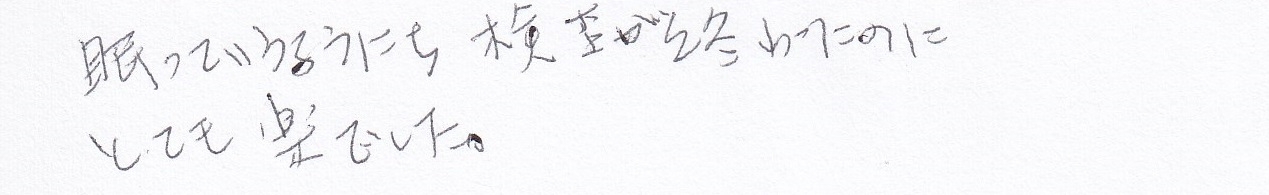 眠っているうちに検査が終わったのに
とても楽でした。